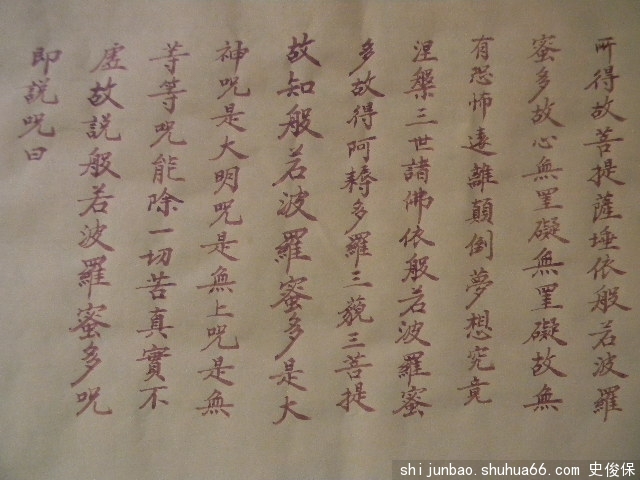 所得故菩提薩埵依般若波羅
蜜多故心無罣礙無罣礙故無
有恐怖遠離顛倒夢想究竟
涅槃三世諸佛依般若波羅蜜
多故得阿耨多羅三藐三菩提
故知般若波羅蜜多是大
神咒是大明咒是無上咒是無
等等咒能除一切苦真實不
虛故說般若波羅蜜多咒
即說咒曰
shijunbao.shuhua66.com 史俊保